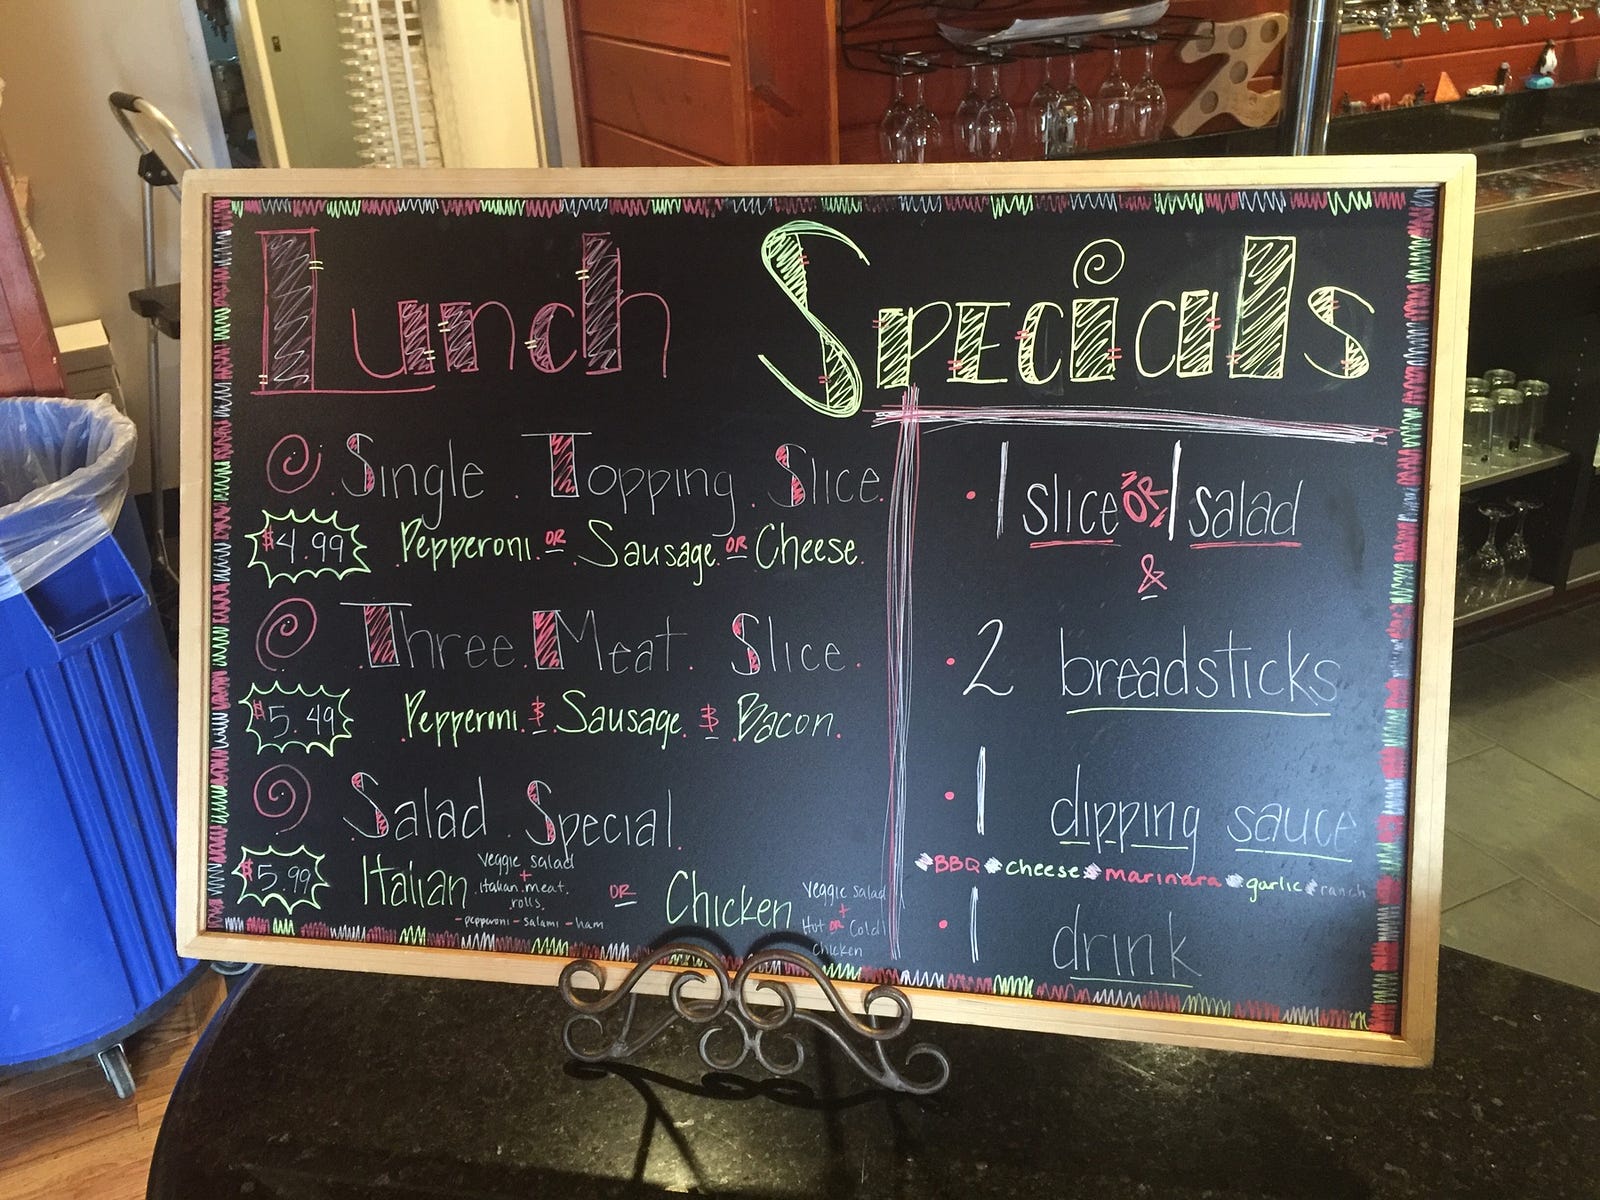 Lunch Specials
Single Topping Slice
$4.99 Pepperoni OR Sausage OR Cheese
Three Meat Slice
$5.49 Pepperoni & Sausage & Bacon
Salad Special
$5.99 Italian
veggie salad
+
italian meat
rolls
- pepperoni - salami - ham
OR
Chicken
veggie salad
+
Hot OR Cold
chicken
1 slice OR 1 salad
&
2 breadsticks
1 dipping sauce
BBQ cheese marinara garlic ranch
1 drink